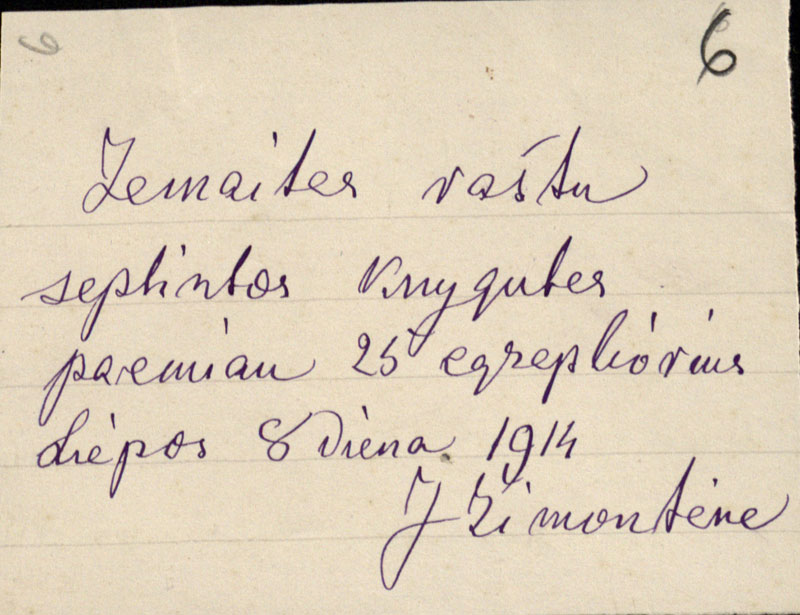 6
6
Žemaites raštu
septintos knygutes
paemiau 25 egzepliórius
Liépos 8 diena 1914
J Žimonténe